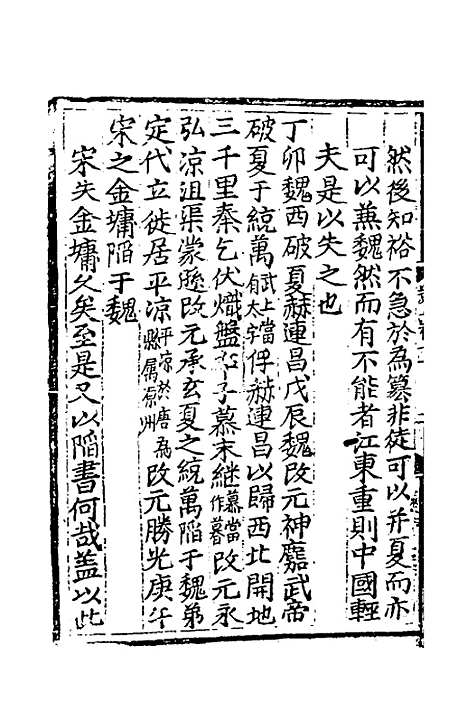 然後知裕不急於為篡非徒可以并夏而亦
可以兼魏然而有不能者江東重則中國輕
夫是以失之也
丁卯魏西破夏赫連昌戊辰魏改元神䴥武帝
破夏于統萬武上當有太字俘赫連昌以歸西北開地
三千里秦乞伏熾盤卒子慕末繼慕當作暮改元永
弘凉沮渠蒙遜改元承玄夏之統萬陷于魏弟
定代立徙居平凉平凉於唐為縣属原州改元勝光庚午
宋之金墉陷于魏
宋失金墉久矣至是又以陷書何哉盖以此